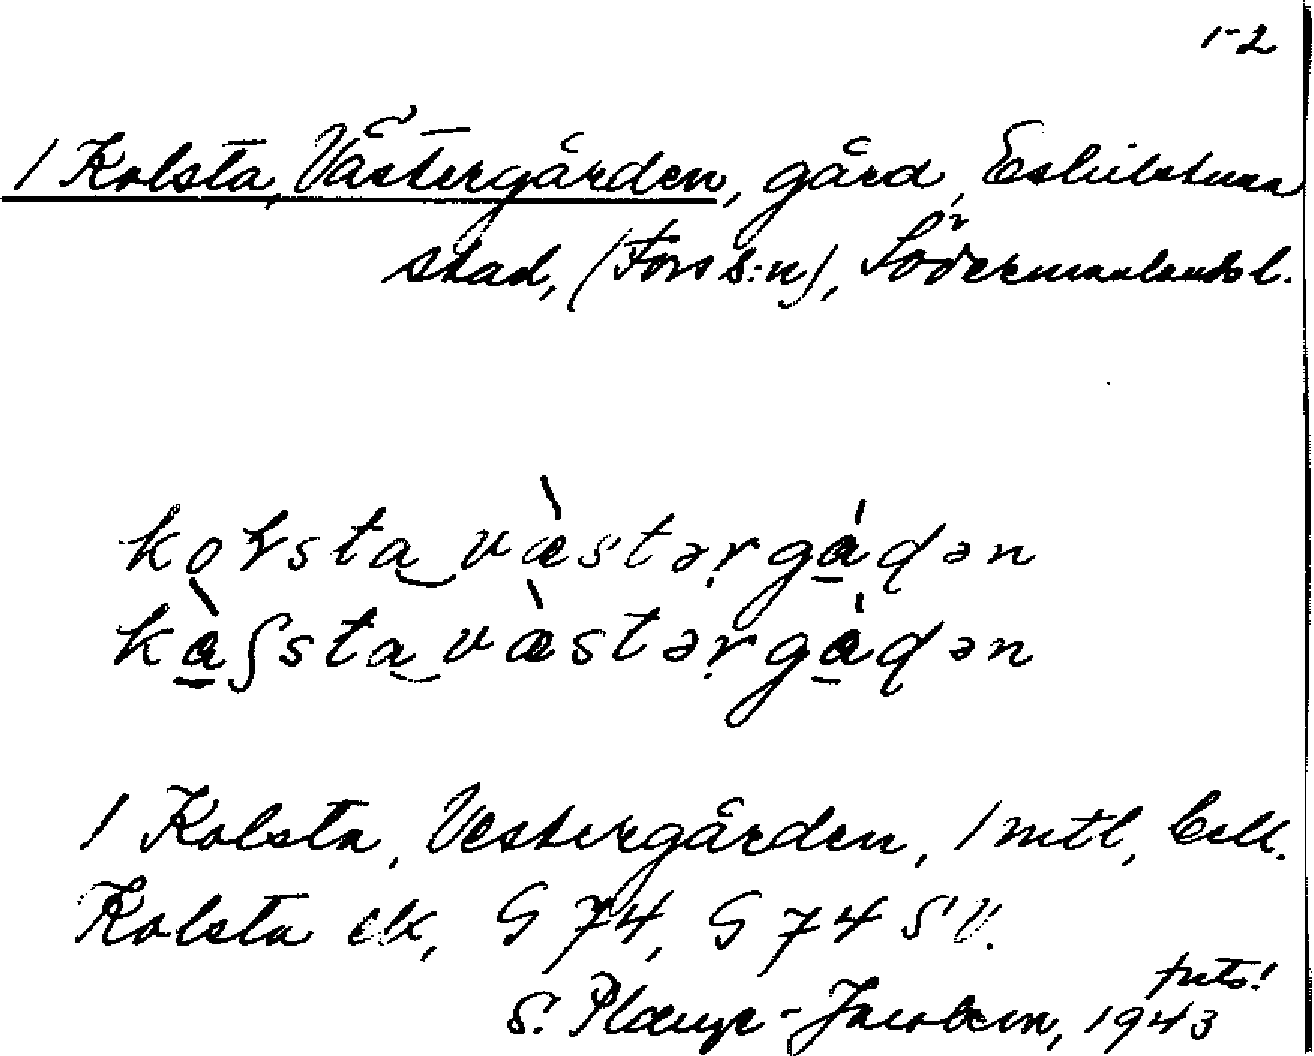 1-2
1 Kolsta, Västergården, gård, Eskilstuna
stad, (Fors s:n), Södermanlands l.
kolsta västərgå̀dən
kåssta västərgådən
1 Kolsta, Vestergården, 1 mtl, Esk.
Kolsta ek, G 74, G 74 SV.
S. Plænge-Jacobson, 1943